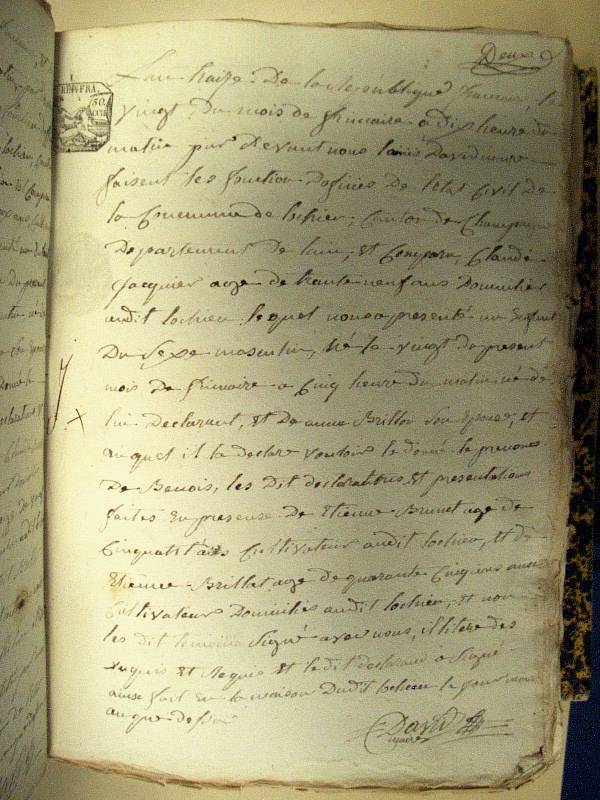 Deux
REP. FRA.
50
L'an traize De la Republique francaise, le
vingt Du mois de frimaire a Dix heure du
matin par Devant nous Davidmaire
faisent les fonction Dofficies De letat Civil De
la Commune de lochieu, Canton de Champagne
Departement De lain, Et Comparu Claude
Jacquier age de trante neuf ans Domicilier
audit lochieu lequel nous a presenté un Enfant
Du Sexe masculin, Né le vingt du present
mois de frimaire a Cinq heure Du matin né de
lui Declarant, Et De anne Brillon Son Epouse, et
auquel il la declare vouloir le donné le prenoms
De Benois, les Dit declarations Et presentations
faites En presense De Etienne Brunet age de
Cinquante ans Cultivateur audit lochieu, Et de
Etienne Brillat age de quarante Cinq ans aussi
Cultivateurs Domiciliés audit lochieu, Et non
les dit temoins Signé avec nous, illiterés des
Enquis Et Requis Et ledit declarant a Signé
ainsi fait En la maison Dudit lochieu le jour mois
an que dessus
David
maire